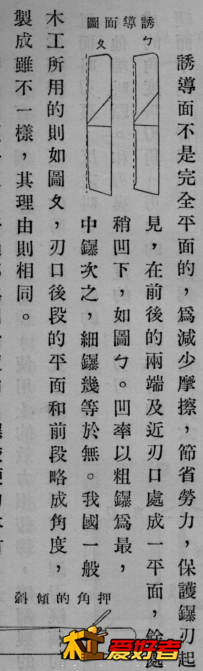 誘導面圖
ㄅ
ㄆ
誘導面不是完全平面的，爲減少摩擦，節省勞力，保護鑤刃起
見，在前後的兩端及近刃口處成一平面，餘處
稍凹下，如圖ㄅ。凹率以粗鑤爲最，
中鑤次之，細鑤幾等於無。我國一般
木工所用的則如圖ㄆ，刃口後段的平面和前段略成角度，
製成雖不一樣，其理由則相同。
押角的傾斜
木工爱好者